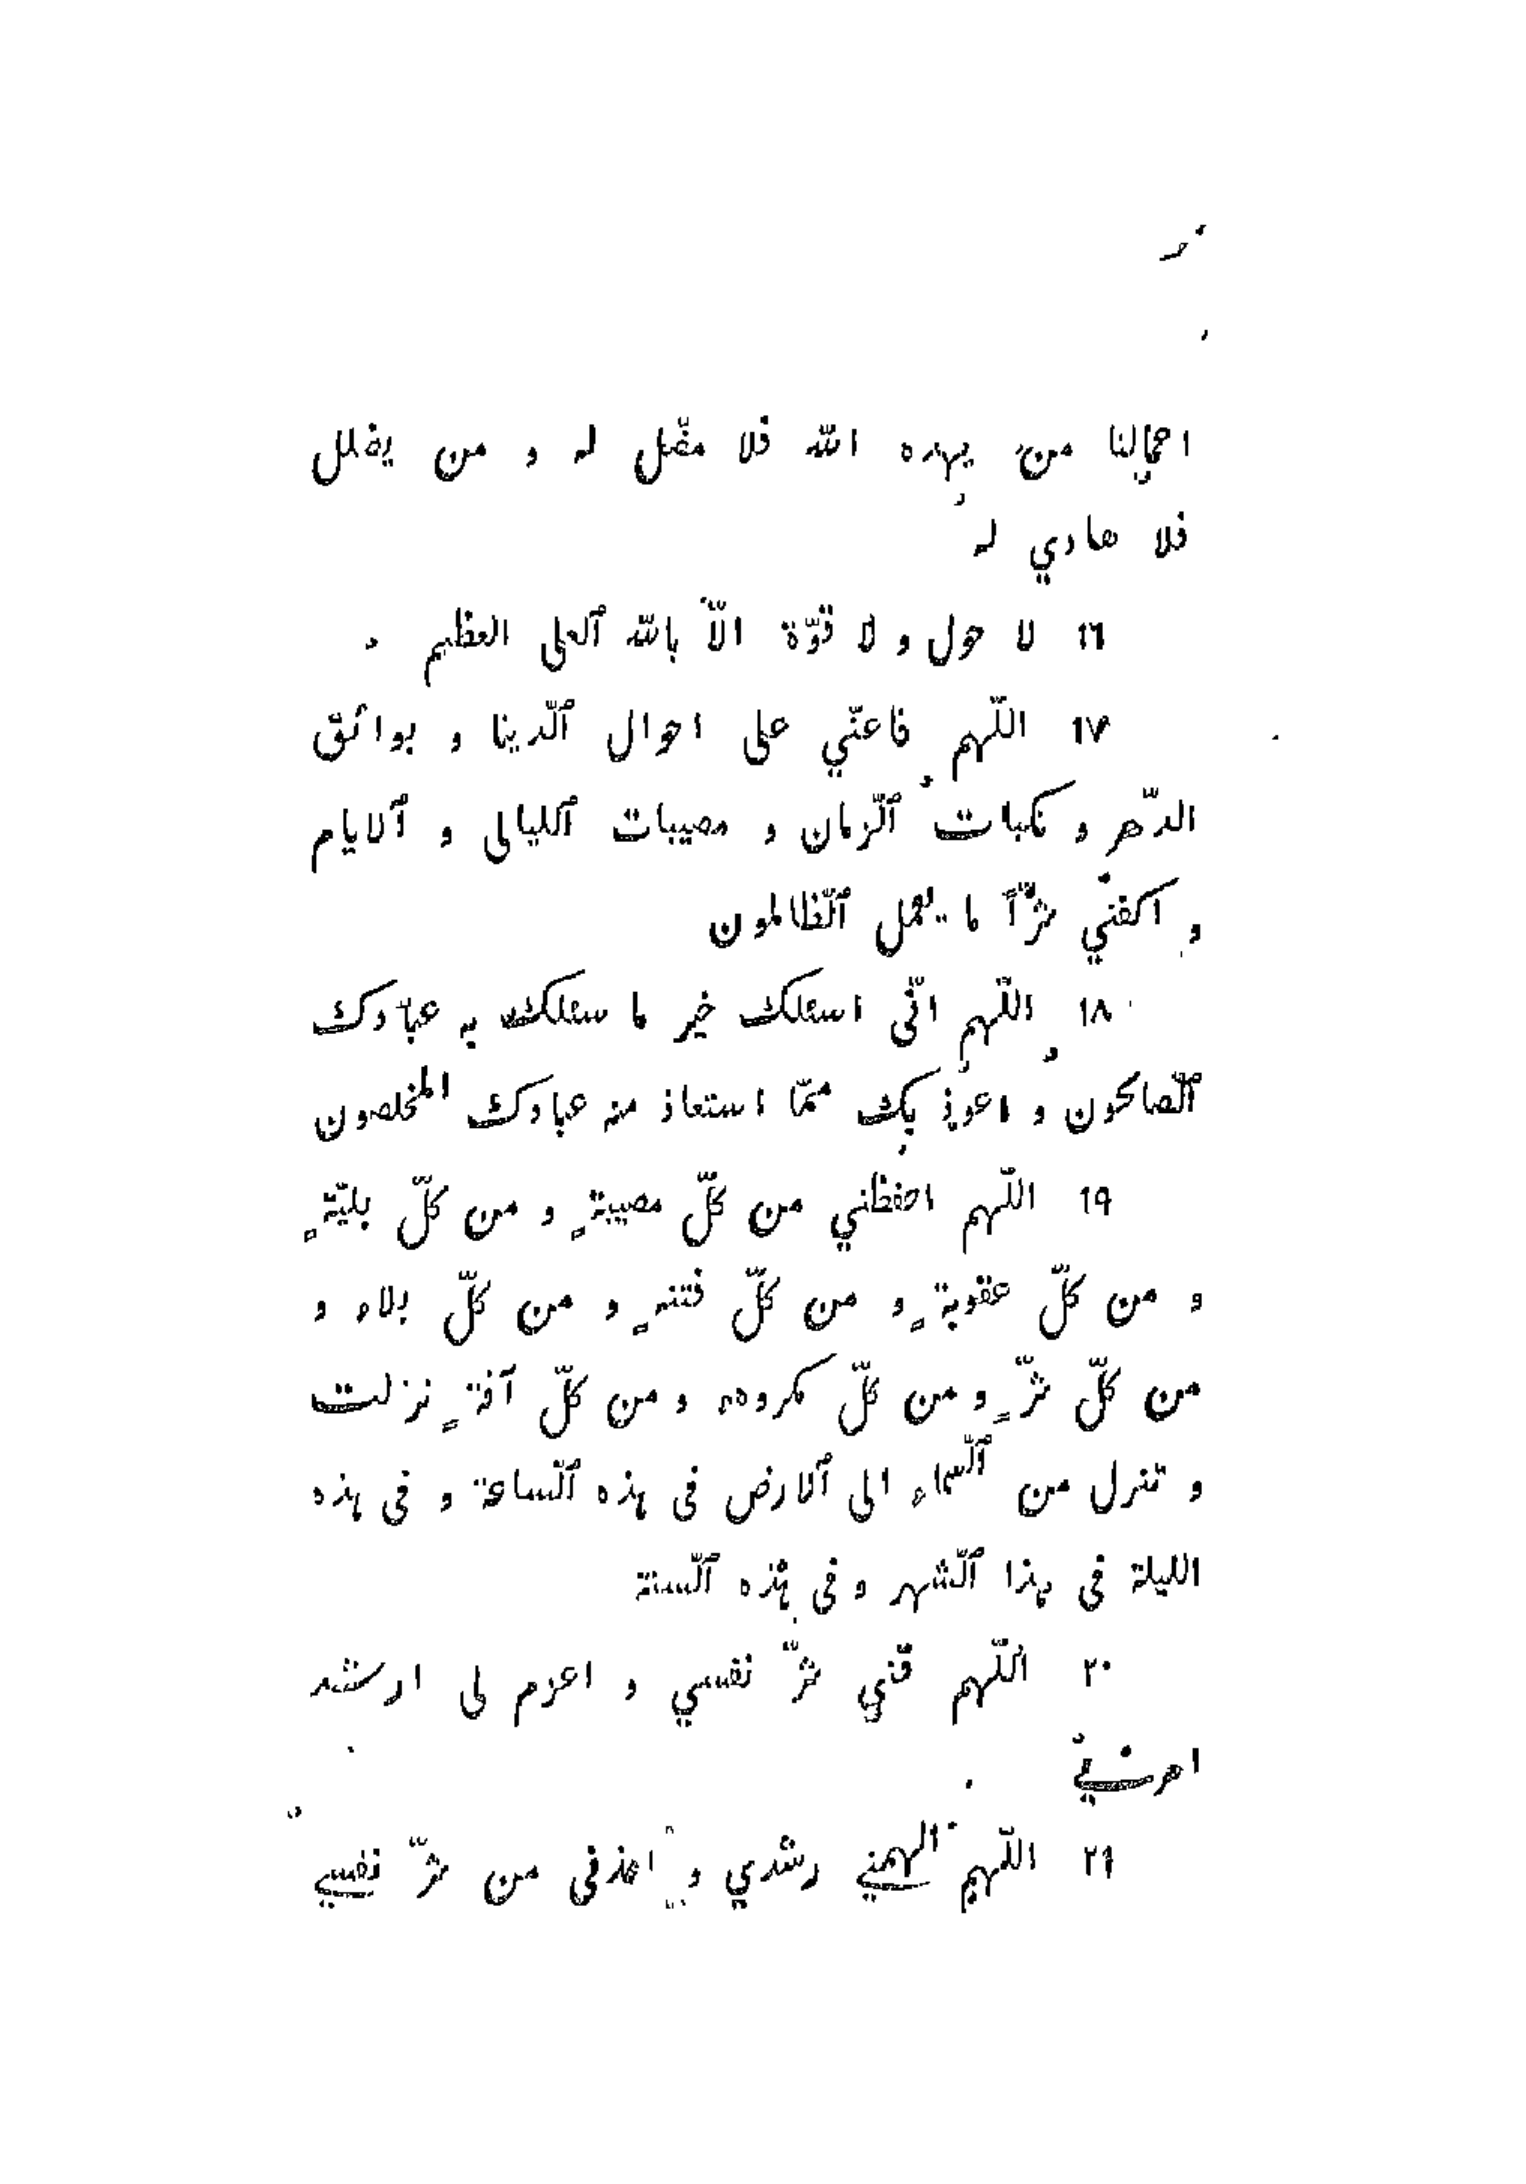 اعمالنا من يهده الله فلا مضّل له و من يضلل
فلا هادي له
١٦ لا حول و لا قوّة الاّ بالله ٱلعلى العظيم
١٧ اللّهم فاعنّي على احوال ٱلّدينا و بوائق
الدّهر و نكبات ٱلّزمان و مصيبات ٱلليالى و ٱلايام
و اكفني شرّاً ما يعمل ٱلّظالمون
١٨ اللّهم انّى اسئلك خير ما سئلك به عبادك
ٱلّصالحون و اعوذ بك ممّا استعاذ منه عبادك المخلصون
١٩ اللّهم احفظني من كلّ مصيبةٍ و من كلّ بليّةٍ
و من كلّ عقوبةٍ و من كلّ فتنهٍ و من كلّ بلاء و
من كلّ شرٍّ و من كلّ مكروه و من كلّ آفةٍ نزلت
و تنزل من ٱلّسماء الى ٱلارض فى هذه ٱلّساعة و فى هذه
الليلة فى هذا ٱلّشهر و فى هذه ٱلّسنة
٢٠ اللّهم قني شرّ نفسي و اعزم لى ارشد
٢١ اللّهم الهمني رشدي و من شرّ نفسي